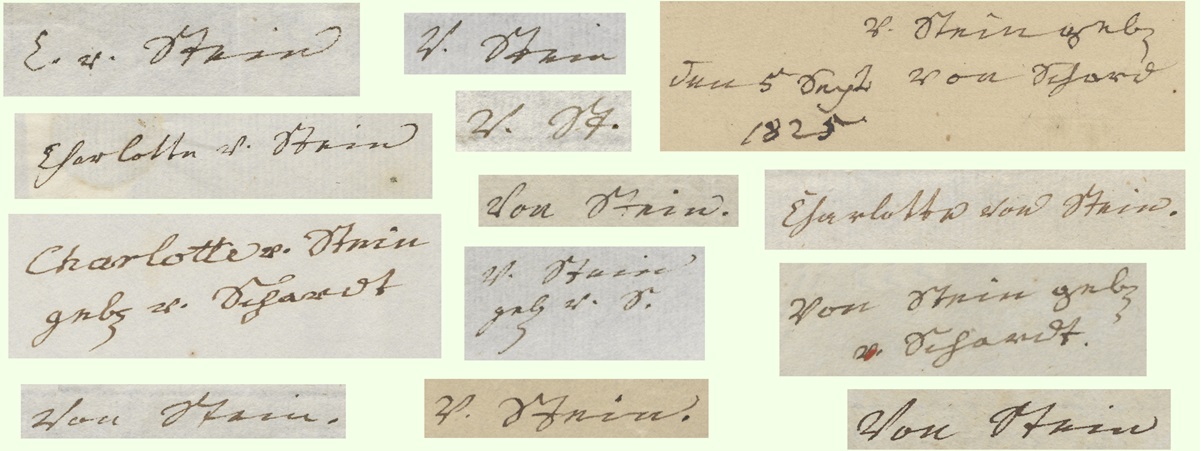 C. v. Stein
Charlotte v. Stein
Charlotte v. Stein
geb v. Schardt
Von Stein.
V. Stein
V. St.
Von Stein.
V. Stein
geb v. S.
V. Stein.
v. Stein geb
den 5 Sept von Schard.
1825
Charlotte von Stein.
Von Stein geb
v. Schardt.
Von Stein